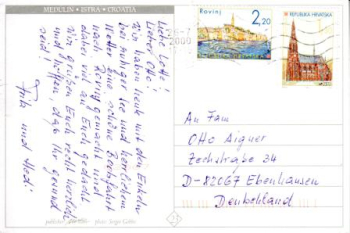 MEDULIN - ISTRA - CROATIA
Liebe Lotte!
Lieber Otto!
Wir haben heute mit den Enkeln
bei ruhiger See und herrlichem
Wetter eine schöne Bootsfahrt
nach Rovinj gemacht und
dabei viel an Euch gedacht
Wir grüßen Euch recht herzlich
und hoffen, dass Ihr gesund
seid!
Fritz und Hedi
Rovinj
2,20
REPUBLIKA HRVATSKA
2000
An Fam
Otto Aigner
Zechstraße 34
D-82067 Ebenhausen
Deutschland